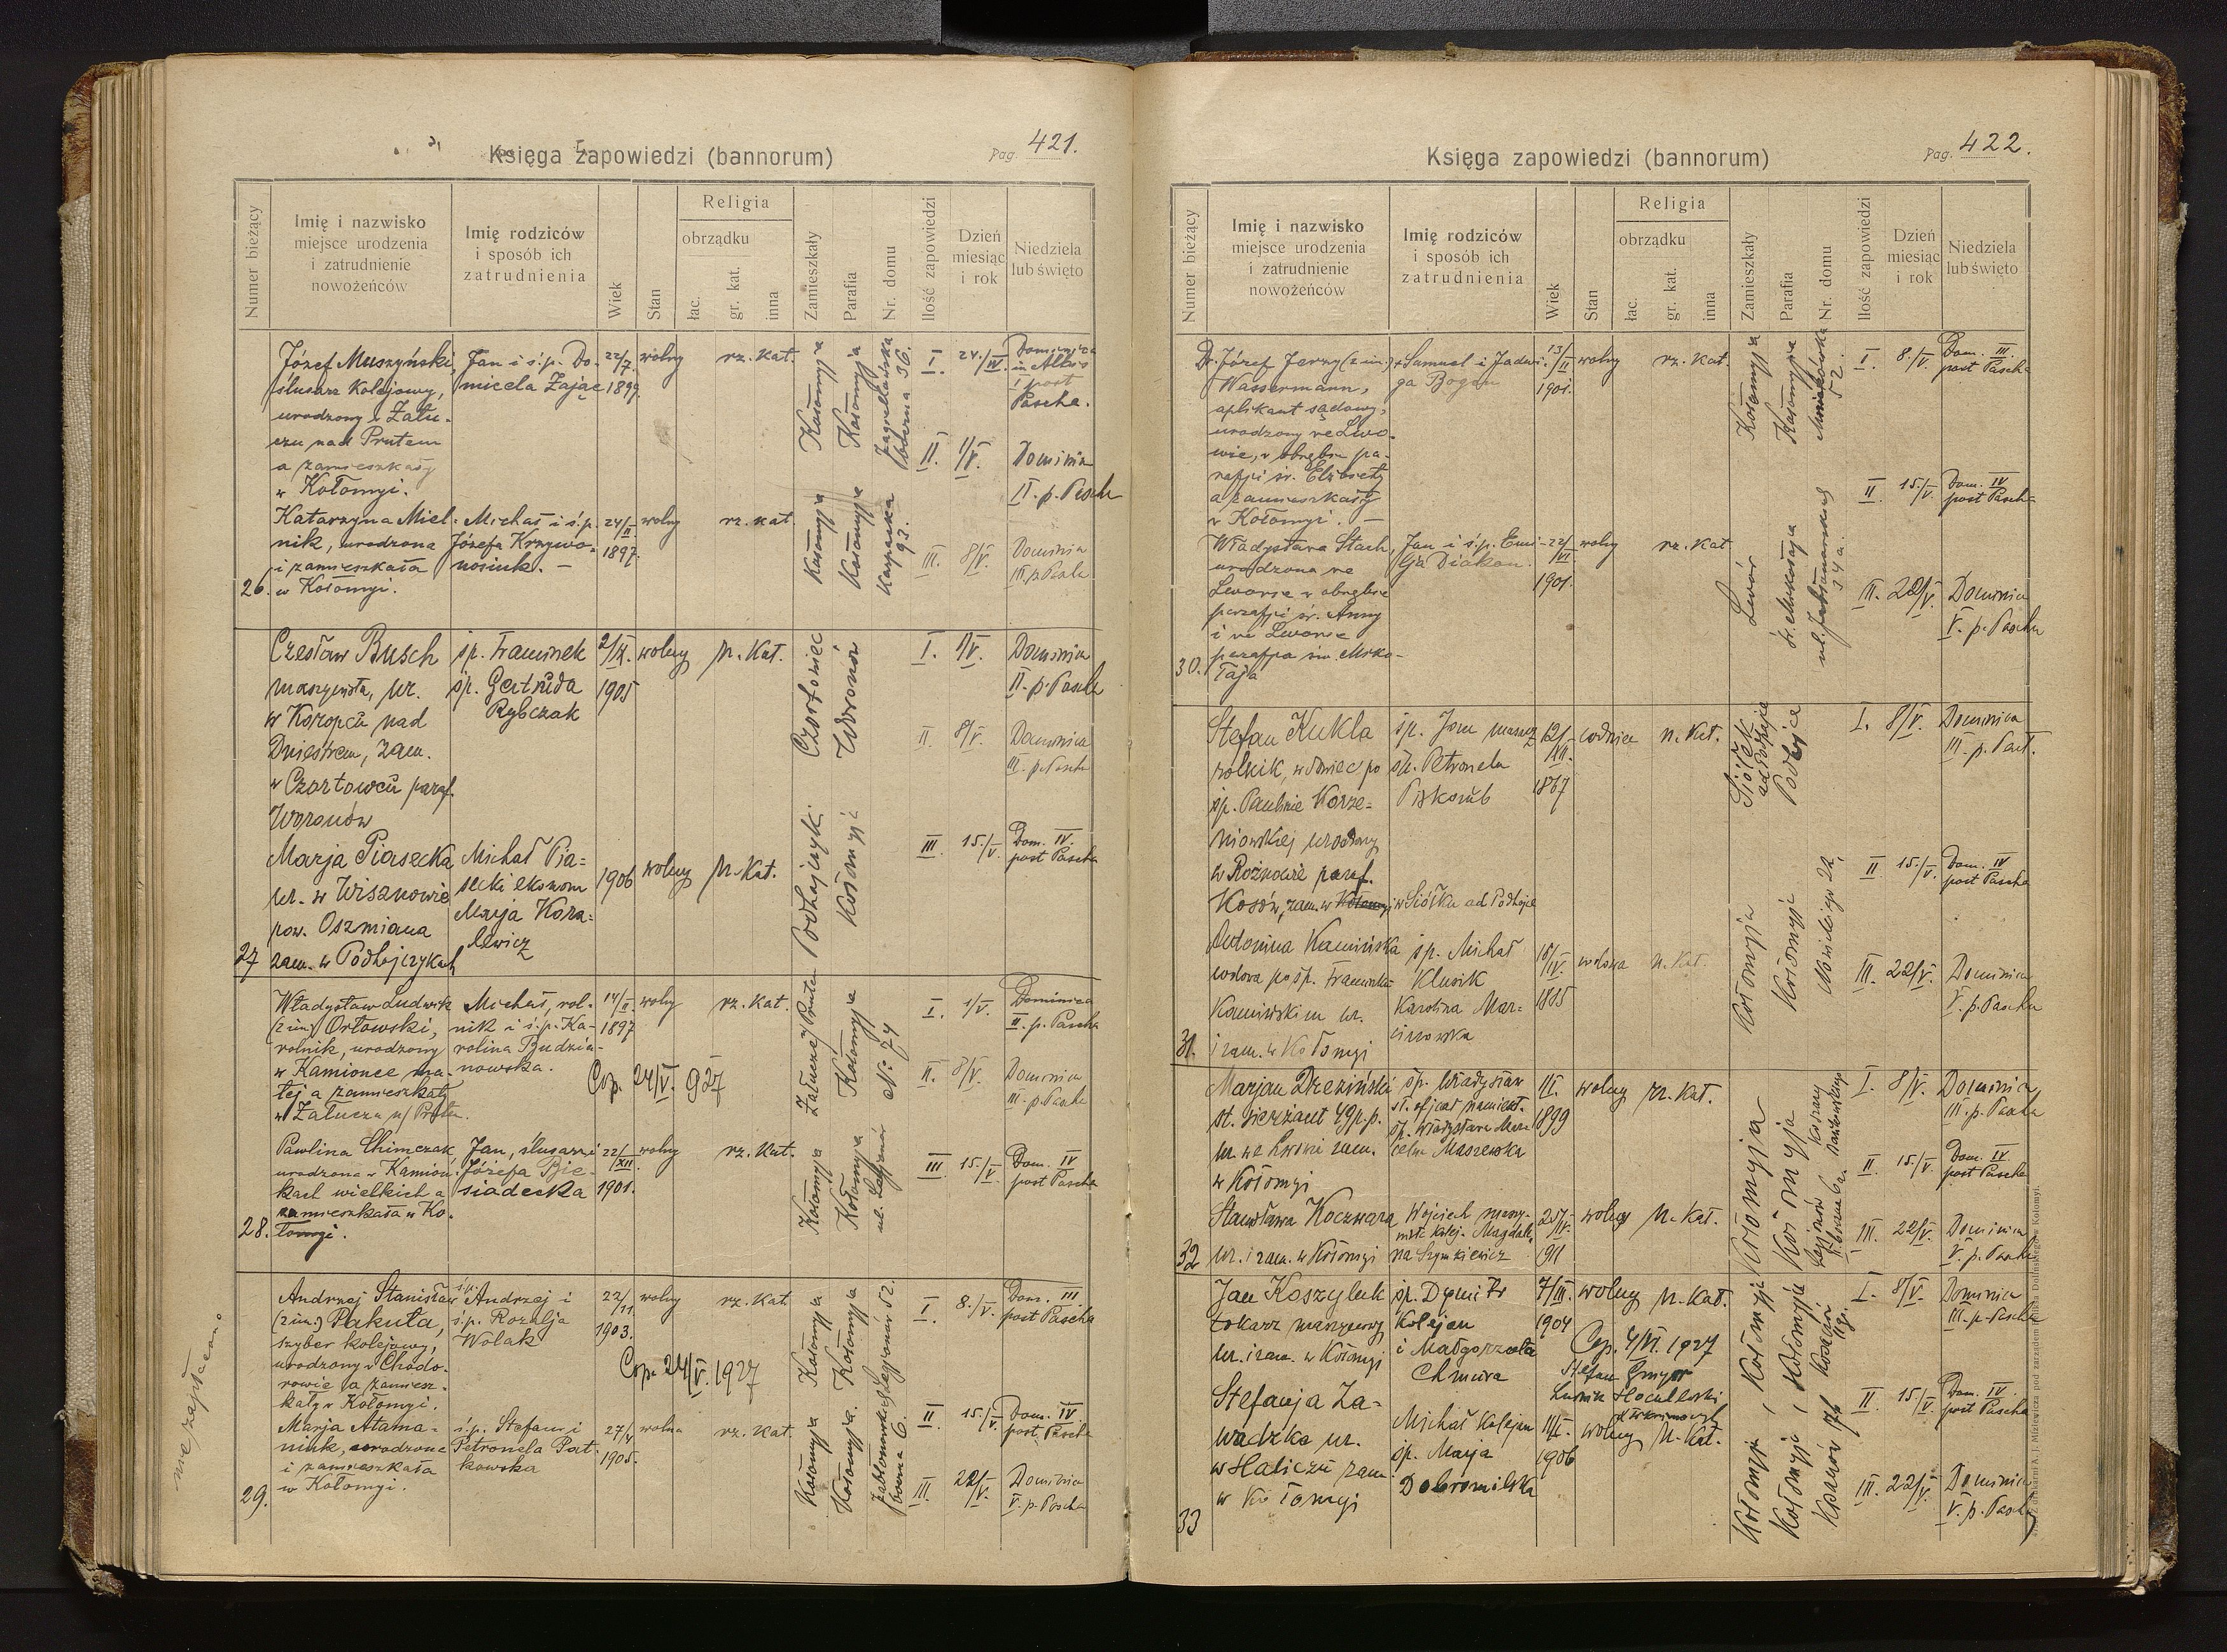 Księga zapowiedzi (bannorum)
Pag. 421.
Numer bieżący
Imię i nazwisko
miejsce urodzenia
i zatrudnienie
nowożeńców
Imię rodziców
i sposób ich
zatrudnienia
Wiek
Stan
Religia
obrządku
łac.
gr. kat.
inna
Zamieszkały
Parafia
Nr. domu
Ilość zapowiedzi
Dzień
miesiąc
i rok
Niedziela
lub święto
26.
Józef Muszyński,
ślusarz kolejowy,
urodzony w Zału-
czu nad Prutem
a zamieszkały
w Kołomyi.
Jan i ś.p. Do-
micela Zając
22/7.
1899.
wolny
rz. kat.
Kołomyja
Kołomyja
Jagiellońska
boczna 36.
I.
24./IV.
Dominica
in Albis
I post
Pascha.
II.
1/V.
Dominica
II. p. Pascha
Katarzyna Miel-
nik, urodzona
i zamieszkała
w Kołomyi.
Michał i ś.p.
Józefa Krzywo-
nosiuk. –
24/II
1897.
wolny
rz. kat.
Kołomyja
Kołomyja
Karpacka
93.
III.
8/V.
Dominica
III. p. Pascha
27
Czesław Busch
maszynista, ur.
w Koropcu nad
Dniestrem, zam.
w Czortowcu paraf.
Woronów
śp. Franciszek
śp. Gertruda
Rybczak
1905
wolny
rz. Kat.
Czortowiec
Woronów
I.
1/V.
Dominica
II. p. Pascha
II
8/V.
Dominica
III. p. Pascha
Marja Piasecka
ur. w Wisznowie
pow. Oszmiana
zam. w Podhajczykach
Michał Pia-
secki ekonom
Marja Kora-
lewicz
1906
wolny
rz. Kat.
Podhajczyki
Kołomyja
III
15./V.
Dom. IV.
post Pascha
28.
Władysław Ludwik
(2 im.) Orłowski,
rolnik, urodzony
w Kamionce ma-
łej a zamieszkały
w Załuczu n/ Prutem.
Michał, rol-
nik i ś.p. Ka-
rolina Budzia-
nowska.
14/II
1897
wolny
rz. kat.
Cop. 24/V. 927
Załucze n/Prutem
Kołomyja
No 74
I.
1/V.
Dominica
II. p. Pascha
II.
8/V.
Dominica
III. p. Pascha
Pawlina Chimczak
urodzona w Kamion-
kach wielkich a
zamieszkała w Ko-
łomyi.
Jan, ślusarz i
Józefa Bie-
siadecka
22/XII
1901.
wolny
rz. Kat.
Kołomyja
Kołomyja
ul. Legjonów
III
15./V.
Dom. IV
post Pascha
29.
nie zapłacono
Andrzej Stanisław
(2 im.) Pakuta,
szyber kolejowy,
urodzony w Chodo-
rowie a zamiesz-
kały w Kołomyi.
ś.p. Andrzej i
ś.p. Rozalja
Wolak
22/11.
1903.
wolny
rz. kat.
Cop. 24/V. 1927
Kołomyja
Kołomyja
Legjonów 52.
I
8./V.
Dom. III
post Pascha
II
15./V.
Dom. IV
post Pascha
Marja Atama-
niuk, urodzona
i zamieszkała
w Kołomyi.
ś.p. Stefan i
Petronela Part-
kowska
1905.
wolna
rz. kat.
Kołomyja
Kołomyja.
boczna 6.
III.
22/V.
Dominica
V. p. Pascha
Księga zapowiedzi (bannorum)
Pag. 422.
Numer bieżący
Imię i nazwisko
miejsce urodzenia
i zatrudnienie
nowożeńców
Imię rodziców
i sposób ich
zatrudnienia
Wiek
Stan
Religia
obrządku
łac.
gr. kat.
inna
Zamieszkały
Parafia
Nr. domu
Ilość zapowiedzi
Dzień
miesiąc
i rok
Niedziela
lub święto
30.
Dr. Józef Jerzy (2 im.)
Wassermann,
aplikant sądowy,
urodzony we Lwo-
wie, w obrębie pa-
rafji św. Elżbiety
a zamieszkały
w Kołomyi. –
+ Samuel i Jadwi-
ga Bogen
13/II
1901.
wolny
rz. kat.
Kołomyja
Kołomyja
52.
I
8./V.
Dom. III.
post Pascha
II
15./V.
Dom. IV
post Pascha
Władysława Stach,
urodzona we
Lwowie w obrębie
parafji św. Anny
i we Lwowie
parafja św. Miko-
łaja
Jan i ś.p. Emi-
lja Diakon.
22/VI
1901.
wolny
rz. kat
Lwów
św. Mikołaja
ul. Jabłonowskich
34 a.
III.
22/V.
Dominica
V. p. Pascha
31.
Stefan Kukla
rolnik, wdowiec po
śp. Paulinie Korze-
niowskiej urodzony
w Rożnowie paraf.
Kosów, zam. w Kołomyi w Siółku ad Podhajce
śp. Jan
śp. Petronela
Piskozub
12/XII.
1867
wdowiec
rz. Kat.
Siółko
ad Podhajce
Podhajce
I.
8/V.
Dominica
III. p. Past.
II
15./V.
Dom. IV
post Pascha
Antonina Kamińska
wdowa po śp. Franciszku
Kamińskim ur.
i zam. w Kołomyi
śp. Michał
Klusik
Karolina Mar-
cinowska
1885
wdowa
rz. Kat.
Kołomyja
Kołomyja
III.
22/V.
Dominica
V. p. Pascha
32
Marjan Dreziński
st. sierżant 49 p.p.
ur. we Lwowie zam.
w Kołomyi
śp. Władysław
st. oficjał namiest.
śp. Władysława Mar-
celina Maszewska
1899
wolny
rz. Kat.
Kołomyja
Kołomyja
I.
8/V.
Dominica
III. p. Pascha
II
15./V.
Dom. IV.
post Pascha
Stanisława Koczwara
ur. i zam. w Kołomyi
Wojciech maszy-
nista kolej. Magdale-
na Szymkiewicz
25/IV.
1911
wolny
rz. Kat.
Legjonów
III.
22/V.
Dominica
V. p. Pascha
33
Jan Koszyluk
tokarz maszynowy
ur. i zam. w Kołomyi
śp. Dymitr
Kolejarz
i Małgorzata
Chmura
7/III.
1904
wolny
rz. Kat.
Cop. 4/VI. 1927
Stefan Gmyr
Kołomyja
Kołomyja
I.
8/V.
Dominica
III. p. Pascha
II
15./V.
Dom. IV.
post Pascha
Stefanja Za-
wadzka ur.
w Haliczu zam.
w Kołomyi
Michał Kolejarz
śp. Marja
Dobromilska
1906
wolny
rz. Kat.
Kołomyja
Kołomyja
III.
22/V.
Dominica
V. p. Pascha